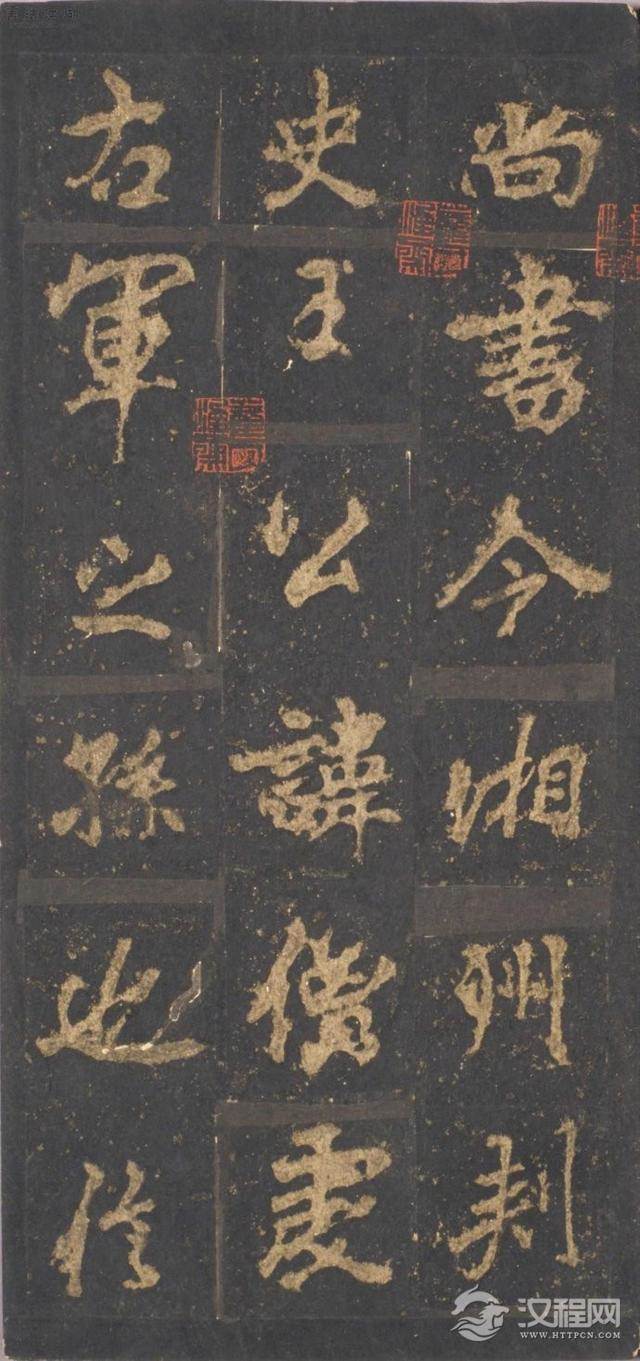 尚書令湘州刺
史王公諱僧虔
右軍之孫也信
汉程网
WWW.HTTPCN.COM